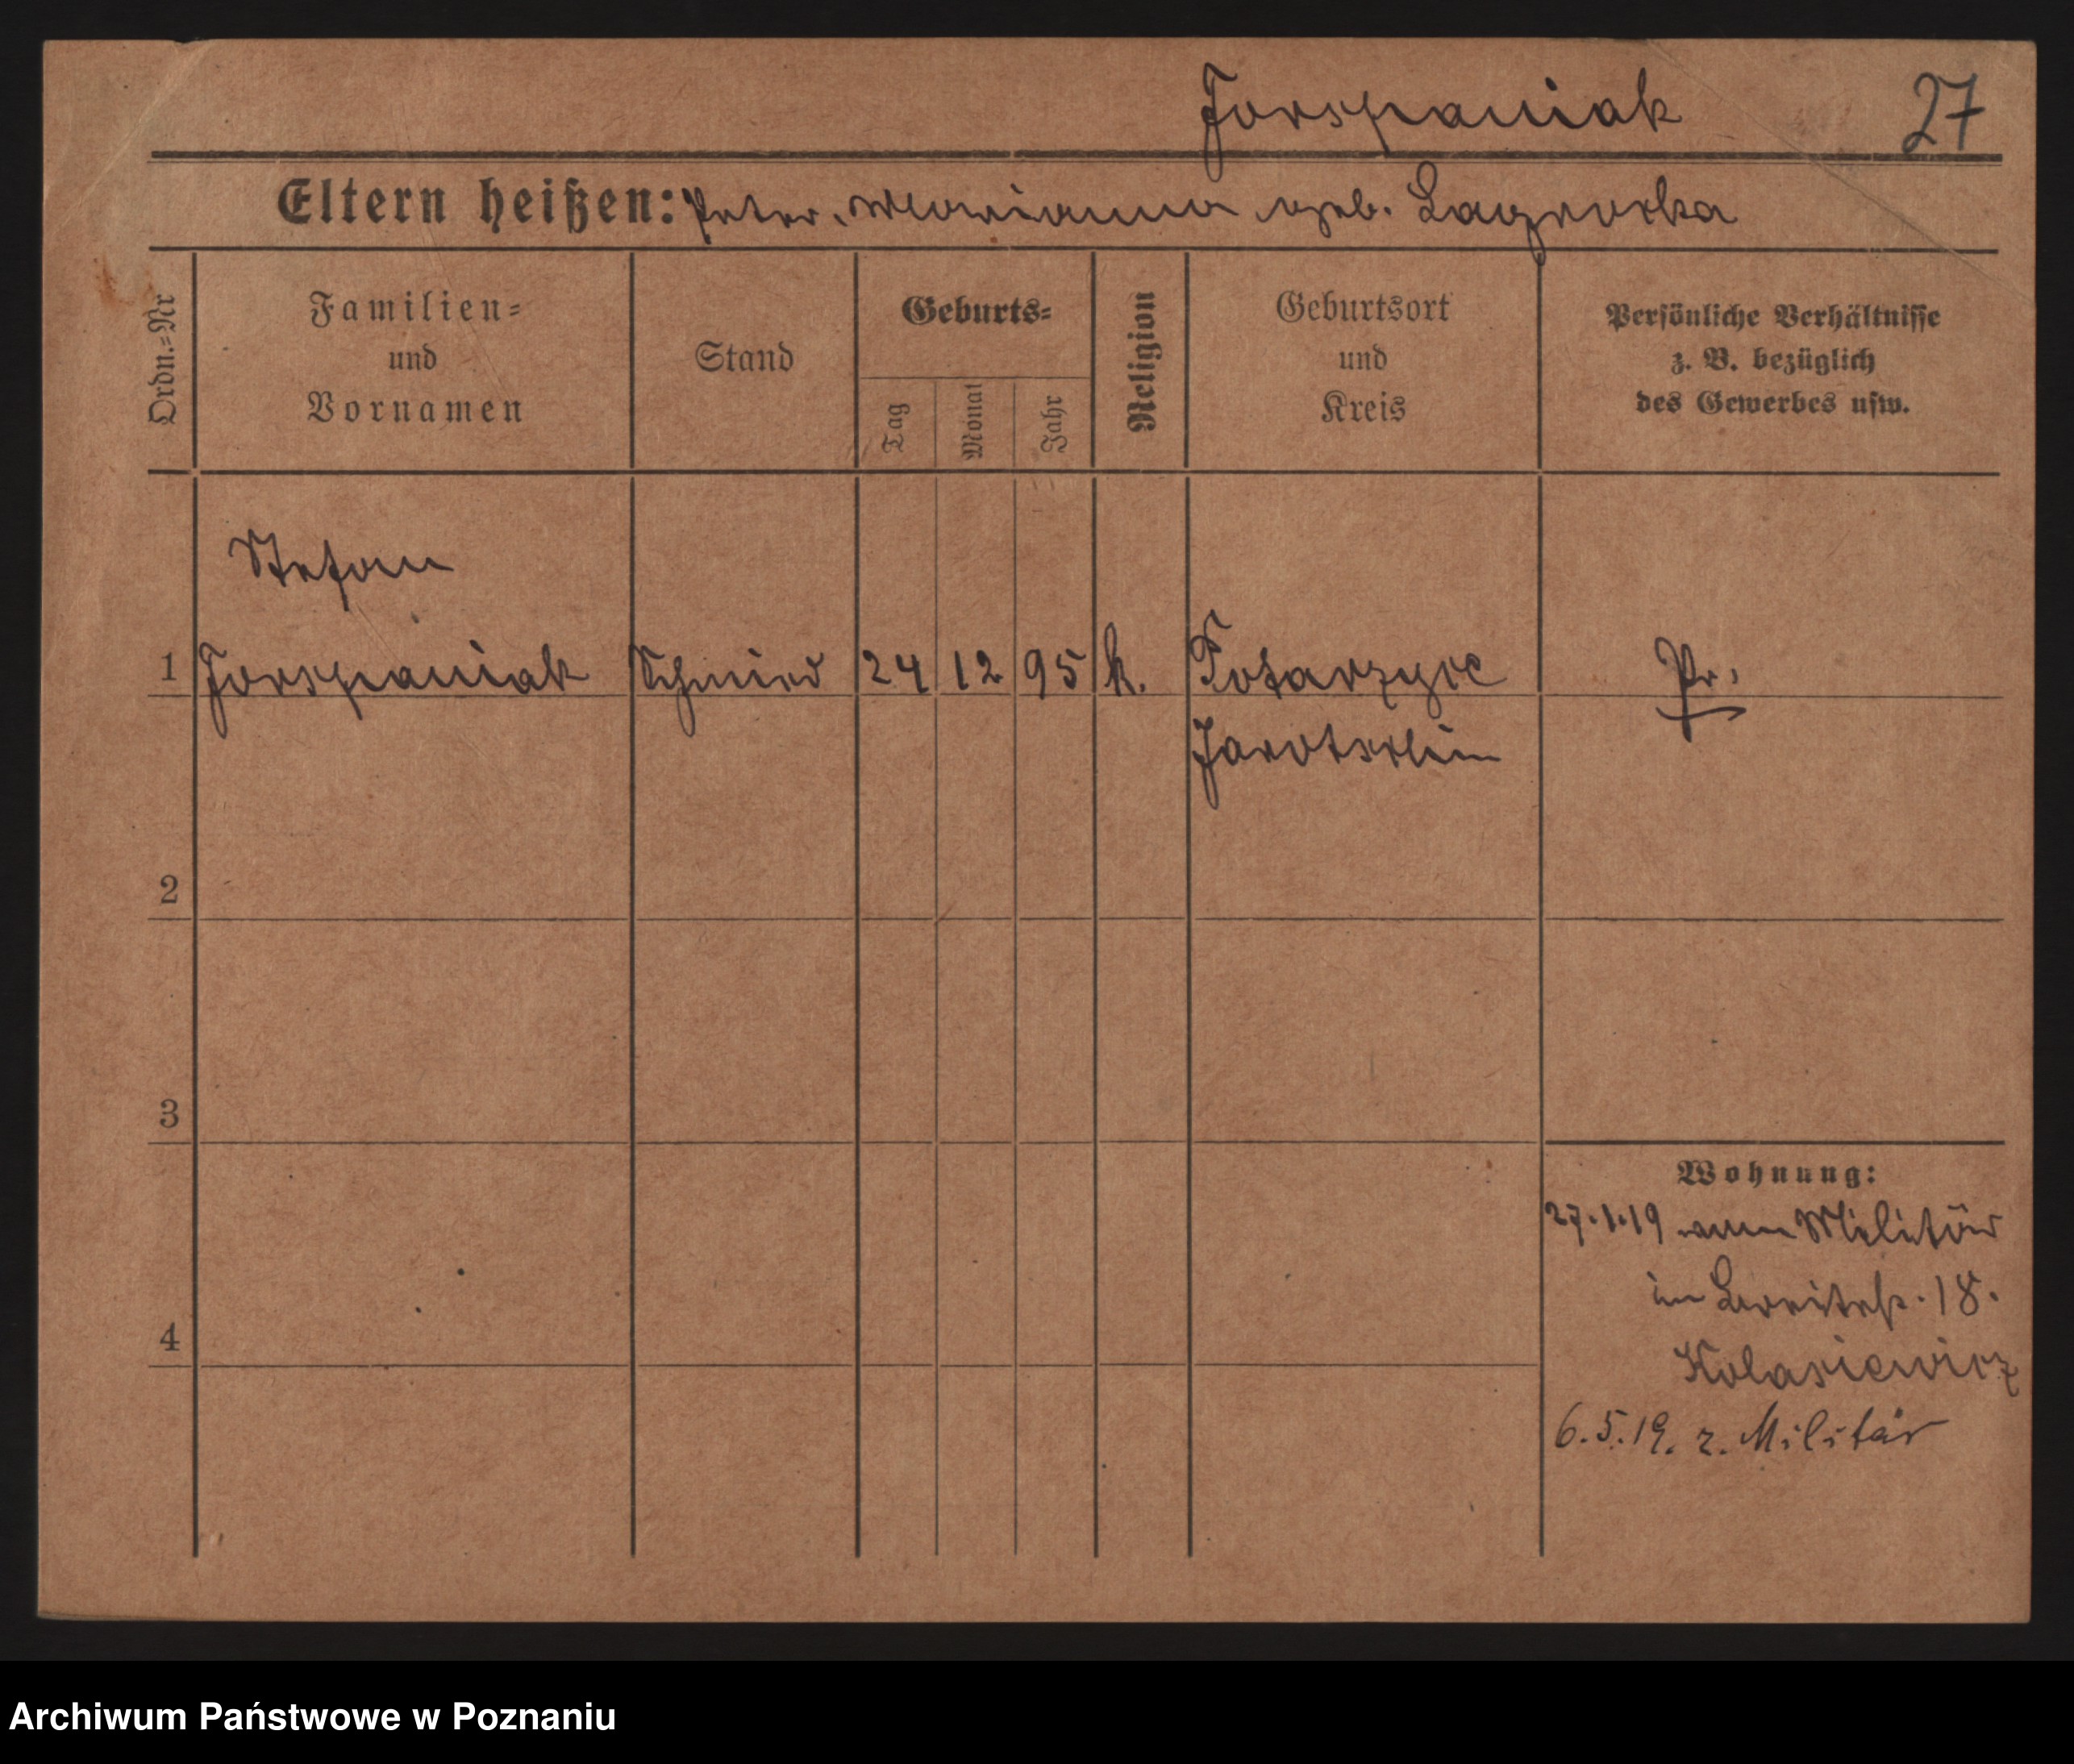 Forspaniak 27
Eltern heißen: Peter, Marianna geb.
Ordn.=Nr
Familien=
und
Vornamen
Stand
Geburts=
Tag
Monat
Jahr
Religion
Geburtsort
und
Kreis
Persönliche Verhältnisse
z. B. bezüglich
des Gewerbes usw.
Stefan
1 Forspaniak Schmied 24 12 95 k. Potarzyce Pr.
Jarotschin
2
3
4
Wohnung:
27.1.19 vom Militär
in Breitestr. 18.
Kolasiewicz
6.5.19. z. Militär
Archiwum Państwowe w Poznaniu